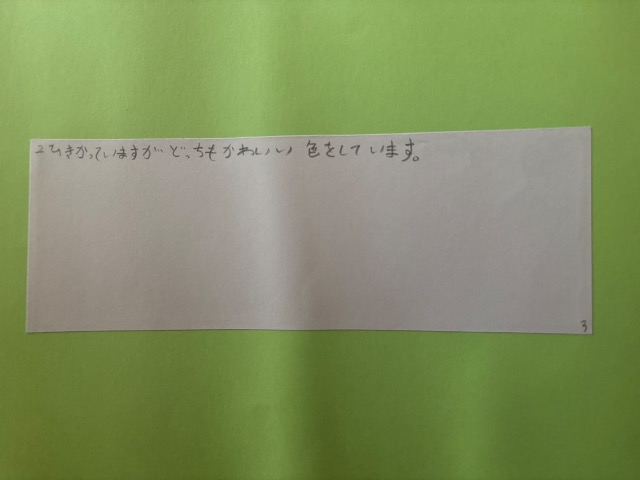 2ひきかっていますが どっちもかわいい 色をしています。
3